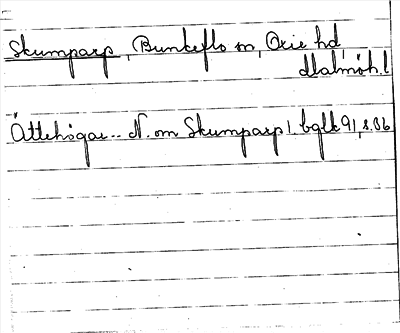 Skumparp, Bunkeflo sn, Oxie hd,
Malmöh. l
Ättehögar.. N. om Skumparp 1. bglk 91, s. 36